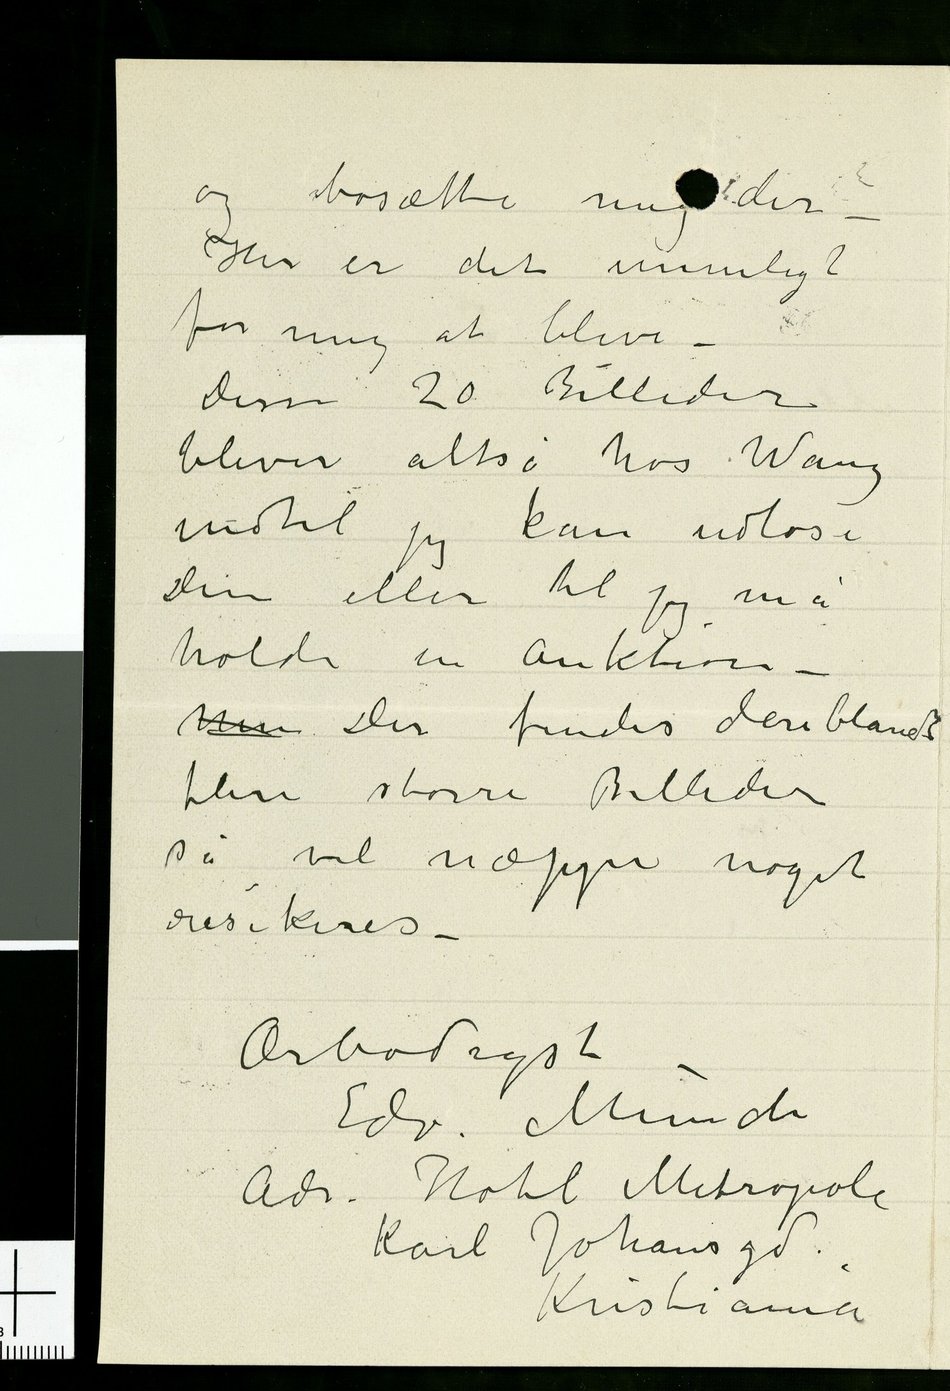 og bosætte mig der –
Her er det umuligt
for mig at blive –
Disse 20 Billeder
bliver altså hos Wang
indtil jeg kan udløse
Dem eller til jeg må
holde en Auktion –
Der findes deriblandt
flere større Billeder
så vel næppe noget
risikeres –
Ærbødigst
Edv. Munch
Adr. Hotel Metropole
Karl Johansgd.
Kristiania